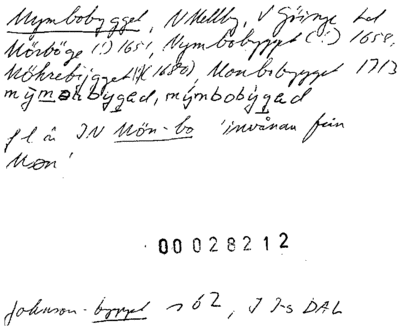 Mymbobygget, N Mellby, V Göinge hd
Mörböge (!) 1651, Nymbobygget (!) 1658,
Möhrebÿgget (!) (1680), Monbobygget 1713
mỳmonbýgad, mỳmbobýgad
f l är IN Mön-bo 'invånan från
Mon'
00028212
Johnson-bygget s 62, J I-s DAL